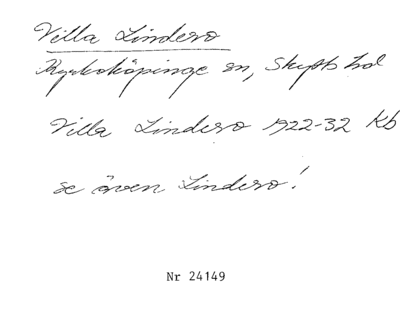 Villa Lindero
Kyrkoköpinge sn, Skytts hd
Villa Lindero 1922-32 Kb
se även Lindero!
Nr 24149